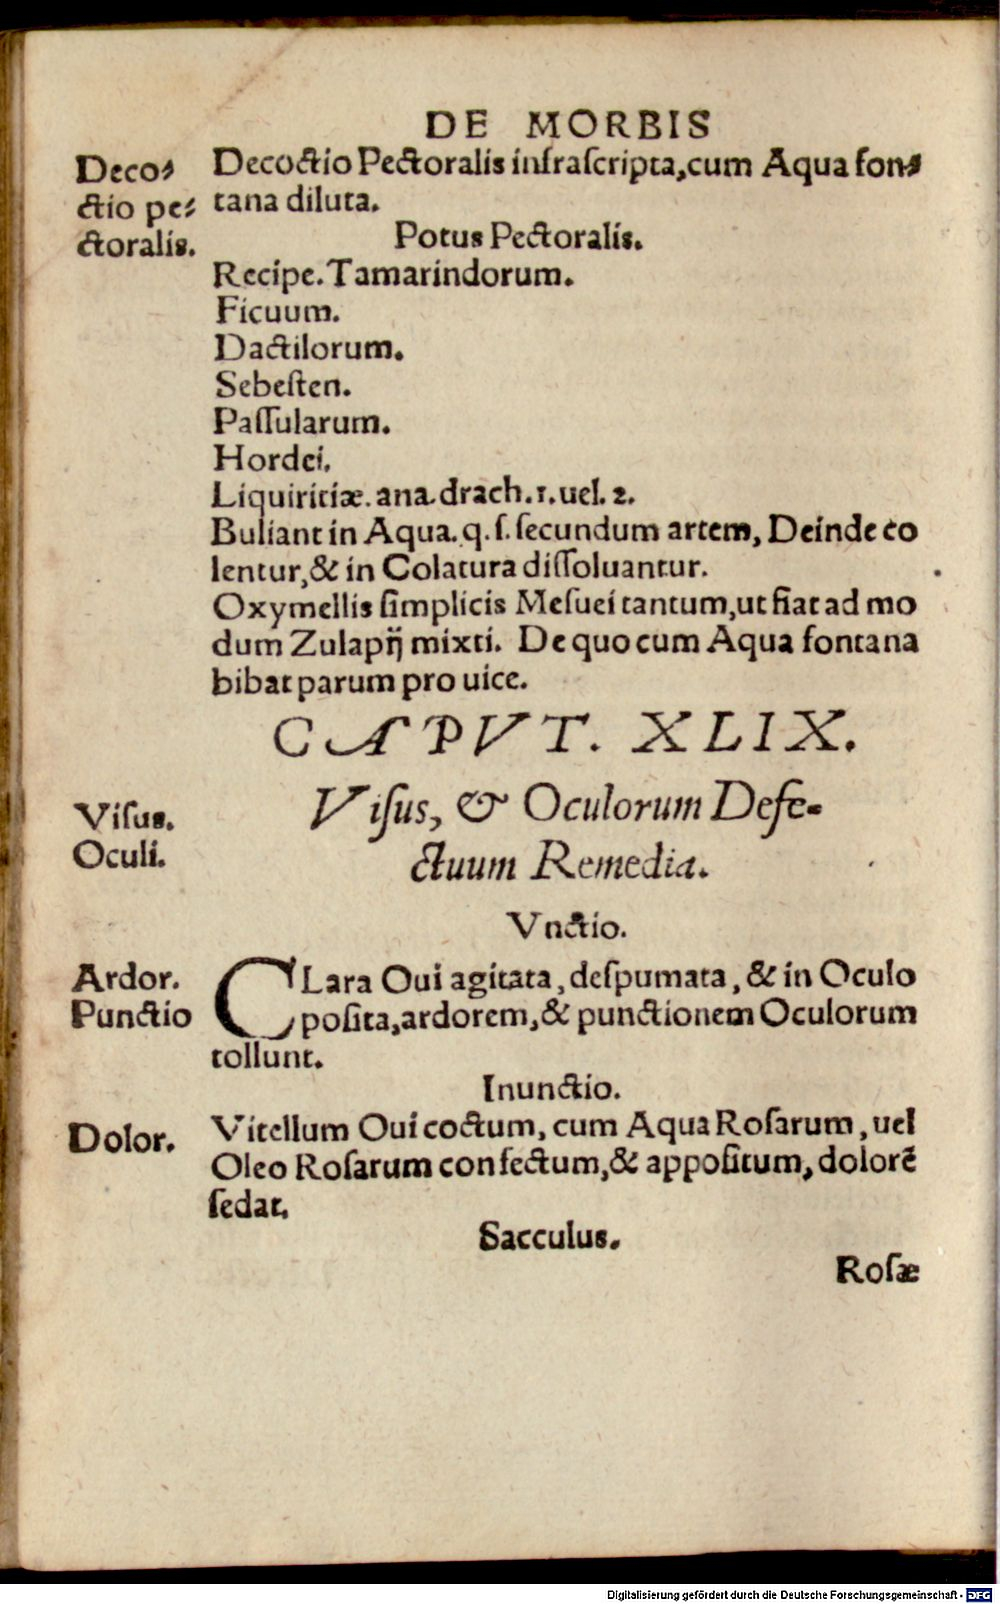 DE MORBIS
Deco⸗
ctio pe⸗
ctoralis.
Decoctio Pectoralis infraſcripta,cum Aqua fon⸗
tana diluta.
Potus Pectoralis.
Recipe. Tamarindorum.
Ficuum.
Dactilorum.
Sebeſten.
Paſſularum.
Hordei.
Liquiritiæ. ana drach. 1. uel. 2.
Buliant in Aqua. q. ſ. ſecundum artem, Deinde co
lentur,& in Colatura diſſoluantur.
Oxymellis ſimplicis Meſuei tantum,ut fiat ad mo
dum Zulapij mixti. De quo cum Aqua fontana
bibat parum pro uice.
CAPVT. XLIX.
Viſus.
Oculi.
Viſus, & Oculorum Defe-
ctuum Remedia.
Vnctio.
Ardor.
Punctio
CLara Oui agitata, deſpumata, & in Oculo
poſita,ardorem,& punctionem Oculorum
tollunt.
Inunctio.
Dolor.
Vitellum Oui coctum, cum Aqua Roſarum, uel
Oleo Roſarum confectum,& appoſitum, dolorē
ſedat.
Sacculus.
Roſæ
Digitalisierung gefördert durch die Deutsche Forschungsgemeinschaft - DFG